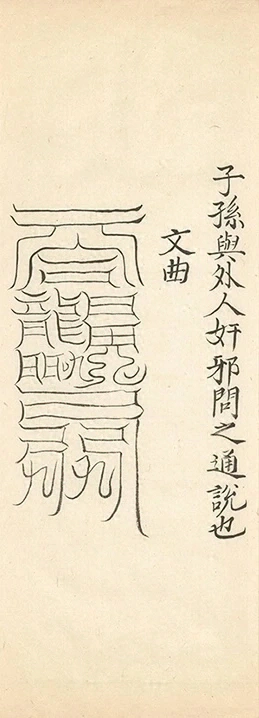 子孫與外人奸邪問之通說也
文曲